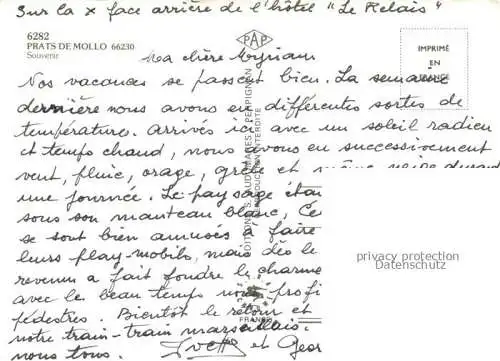 Sur la x face arrière de l'hôtel "Le Relais"
6282
PRATS DE MOLLO 66230
Souvenir
PAP
IMPRIMÉ
EN
FRANCE
Ma chère Myriam
Nos vacances se passent bien. La semaine
dernière nous avons eu différentes sortes de
température. Arrivés ici avec un soleil radieu
et temps chaud, nous avons eu successivement
vent, pluie, orage, grêle et même neige durant
une journée. Le paysage étai
sous son manteau blanc, Ce
se sont bien amusés à faire
leurs play-mobils, mais dès le
revenu a fait fondre le charme
avec le beau temps nous profi
pédestres. Bientôt le retour et
notre train-train marseillais.
nous tous. Yvette et Geor
EDITIONS S.L. AUDUMARES - PERPIGNAN
REPRODUCTION INTERDITE
FRANCE
privacy protection
Datenschutz